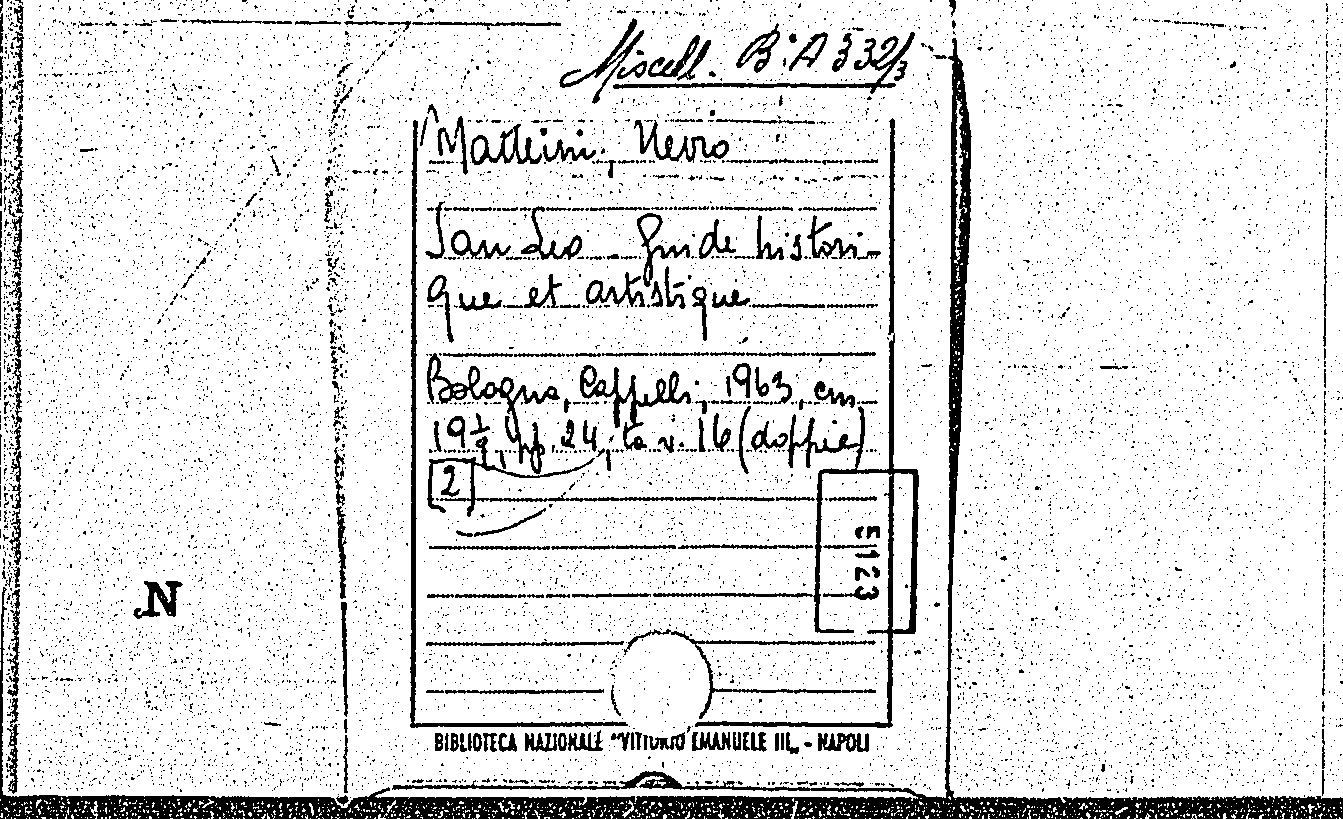 Miscell. B: A 532/3
Matteini, Nevio
San Leo - Guide histori-
que et artistique
Bologna, Cappelli, 1963, cm
19 1/2, pp. 24, tav. 16 (doppie)
[2]
5123
N
BIBLIOTECA NAZIONALE "VITTORIO EMANUELE III„ - NAPOLI